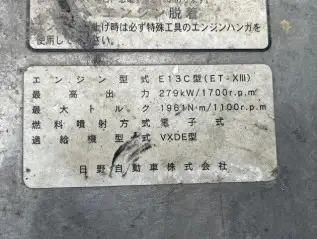 脱着
上げ時は必ず特殊工具のエンジンハンガを
使用してください。
エンジン型式 E13C型(ET-XIII)
最高出力 279kW/1700r.p.m
最大トルク 1961N·m/1100r.p.m
燃料噴射方式 電子式
過給機型式 VXDE型
日野自動車株式会社